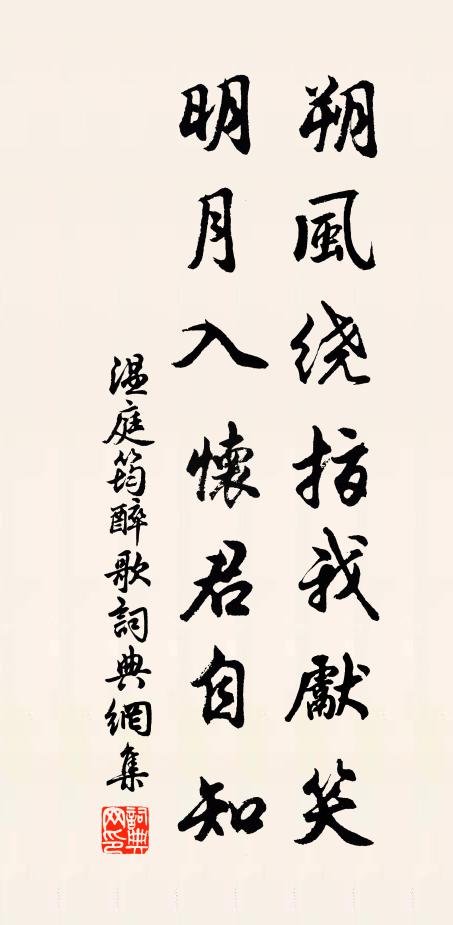 朔風绕指我獻笑
明月入懷君自知
温庭筠醉歌詞典網集
詞典
网印